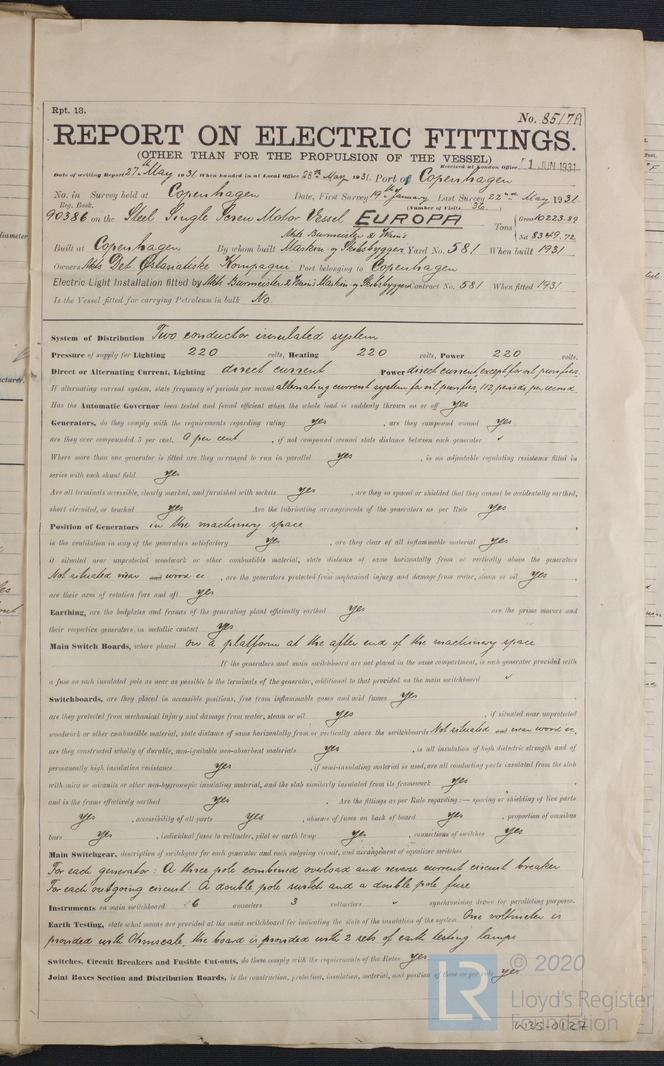 Rpt. 13.
No. 8517A
REPORT ON ELECTRIC FITTINGS.
(OTHER THAN FOR THE PROPULSION OF THE VESSEL)
Received at London Office 1 JUN 1931
Date of writing Report 27th May 1931. When handed in at Local Office 28th May 1931. Port of Copenhagen
No. in Survey held at Copenhagen Date, First Survey 19th January Last Survey 22nd May 1931
Reg. Book. (Number of Visits 36)
90386 on the Steel Single Screw Motor Vessel EUROPA Tons Gross 10223.89
Net 8349.72
Akts Burmeister & Wain's
Built at Copenhagen By whom built Maskin og Skibsbyggeri Yard No. 581 When built 1931
Owners Akts Det Østasiatiske Kompagni Port belonging to Copenhagen
Electric Light Installation fitted by Akts Burmeister & Wain's Maskin og Skibsbyggeri Contract No. 581 When fitted 1931
Is the Vessel fitted for carrying Petroleum in bulk No.
System of Distribution Two conductor insulated system
Pressure of supply for Lighting 220 volts, Heating 220 volts, Power 220 volts.
Direct or Alternating Current, Lighting direct current Power direct current, except for oil purifies
If alternating current system, state frequency of periods per second alternating current system for oil purifies, 112 periods per second
Has the Automatic Governor been tested and found efficient when the whole load is suddenly thrown on or off yes
Generators, do they comply with the requirements regarding rating yes, are they compound wound yes,
are they over compounded 5 per cent. 0 per cent, if not compound wound state distance between each generator "
Where more than one generator is fitted are they arranged to run in parallel yes, is an adjustable regulating resistance fitted in
series with each shunt field yes
Are all terminals accessible, clearly marked, and furnished with sockets yes, are they so spaced or shielded that they cannot be accidentally earthed,
short circuited, or touched yes Are the lubricating arrangements of the generators as per Rule yes
Position of Generators in the machinery space
is the ventilation in way of the generators satisfactory yes, are they clear of all inflammable material yes
if situated near unprotected woodwork or other combustible material, state distance of same horizontally from or vertically above the generators
Not situated near wood ec, are the generators protected from mechanical injury and damage from water, steam or oil yes,
are their axes of rotation fore and aft yes
Earthing, are the bedplates and frames of the generating plant efficiently earthed yes are the prime movers and
their respective generators in metallic contact yes
Main Switch Boards, where placed on a platform at the after end of the machinery space
If the generators and main switchboard are not placed in the same compartment, is each generator provided with
a fuse on each insulated pole as near as possible to the terminals of the generator, additional to that provided on the main switchboard "
Switchboards, are they placed in accessible positions, free from inflammable gases and acid fumes yes
are they protected from mechanical injury and damage from water, steam or oil yes, if situated near unprotected
woodwork or other combustible material, state distance of same horizontally from or vertically above the switchboards Not situated near wood ec,
are they constructed wholly of durable, non-ignitable non-absorbent materials yes, is all insulation of high dielectric strength and of
permanently high insulation resistance yes, if semi-insulating material is used, are all conducting parts insulated from the slab
with mica or micanite or other non-hygroscopic insulating material, and the slab similarly insulated from its framework yes
and is the frame effectively earthed yes. Are the fittings as per Rule regarding:— spacing or shielding of live parts
yes, accessibility of all parts yes, absence of fuses on back of board yes, proportion of omnibus
bars yes, individual fuses to voltmeter, pilot or earth lamp yes, connections of switches yes
Main Switchgear, description of switchgear for each generator and each outgoing circuit, and arrangement of equalizer switches
For each generator: A three pole combined overload and reverse current circuit breaker
For each outgoing circuit: A double pole switch and a double pole fuse
Instruments on main switchboard 6 ammeters 3 voltmeters " synchronising device for paralleling purposes.
Earth Testing, state what means are provided at the main switchboard for indicating the state of the insulation of the system One voltmeter is
provided with Ohmscale, the board is provided with 2 sets of earth testing lamps
Switches, Circuit Breakers and Fusible Cut-outs, do these comply with the requirements of the Rules yes
Joint Boxes Section and Distribution Boards, is the construction, protection, insulation, material, and position of these as per rule yes
© 2020
LR
Lloyd's Register
Foundation
W25-0127